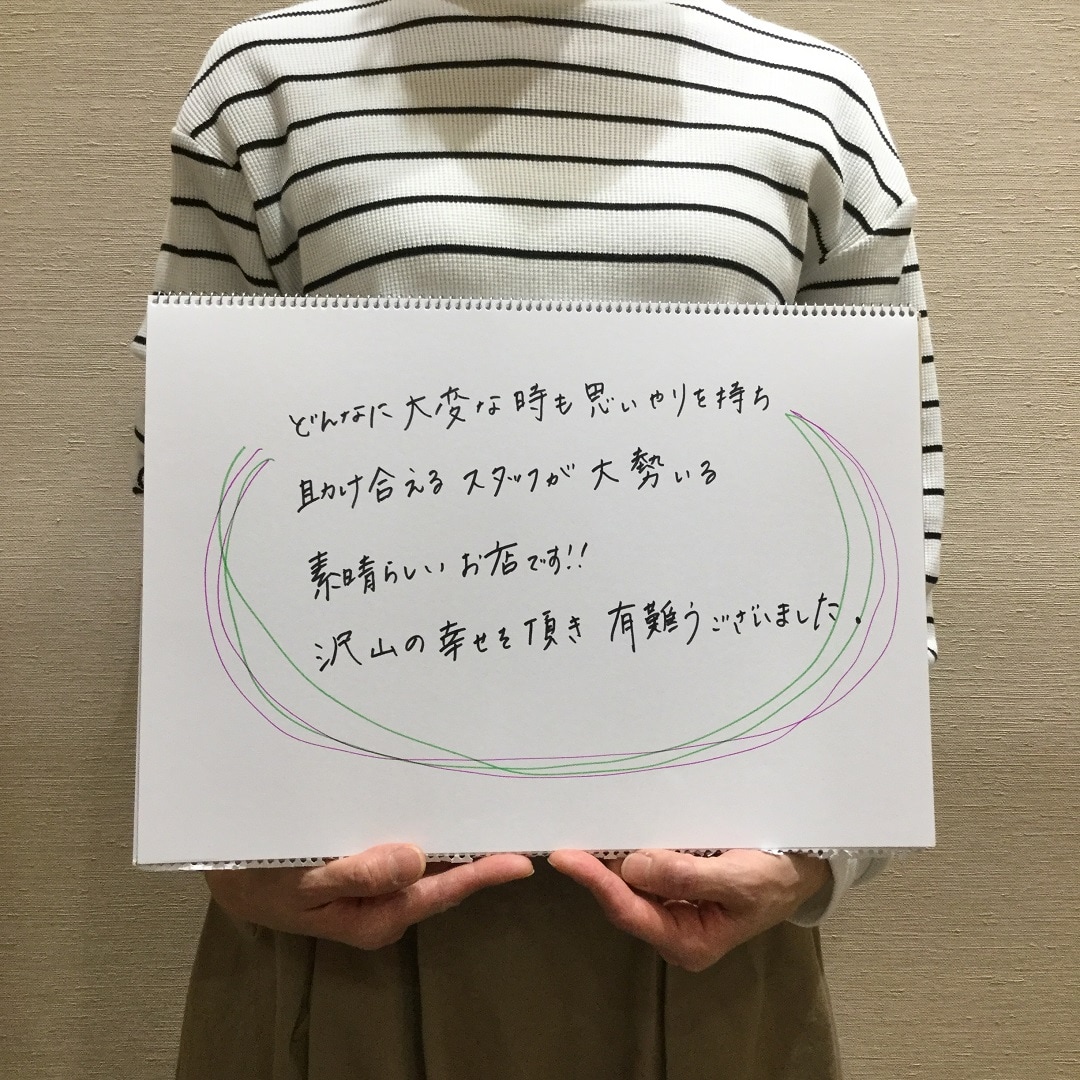 どんなに大変な時も思いやりを持ち
助け合えるスタッフが大勢いる
素晴らしいお店です!!
沢山の幸せを頂き有難うございました.